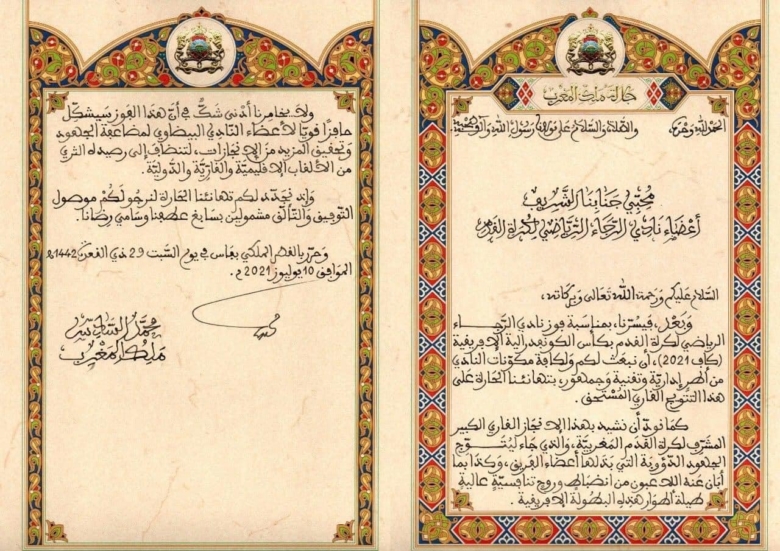 جلالة ملك المغرب
الحمد لله وحده، والصلاة والسلام على مولانا رسول الله وآله وصحبه
محبي جنابنا الشريف
أعضاء نادي الرجاء الرياضي لكرة القدم
السلام عليكم ورحمة الله تعالى وبركاته،
وبعد، فيسرنا، بمناسبة فوز نادي الرجاء
الرياضي لكرة القدم بكأس الكونفدرالية الإفريقية
(كاف 2021)، أن نبعث لكم ولكافة مكونات النادي
من أطر إدارية وتقنية وجمهور، بتهانئنا الحارة على
هذا التتويج القاري المستحق.
كما نود أن نشيد بهذا الإنجاز القاري الكبير
المشرف لكرة القدم المغربية، والذي جاء ليتوج
الجهود الدؤوبة التي بذلها أعضاء الفريق، وكذا بما
أبان عنه اللاعبون من انضباط وروح تنافسية عالية
طيلة أطوار هذه البطولة الإفريقية.
ولا يخامرنا أدنى شك في أن هذا الفوز سيشكل
حافزا قويا لأعضاء النادي البيضاوي لمضاعفة الجهود
وتحقيق المزيد من الإنجازات، لتنضاف إلى رصيده الثري
من الألقاب الإقليمية والقارية والدولية.
وإذ نجدد لكم تهانئنا الحارة لنرجو لكم موصول
التوفيق والتألق مشمولين بسابغ عطفنا وسامي رضانا.
وحرر بالقصر الملكي بفاس في يوم السبت 29 ذي القعدة 1442هـ
الموافق 10 يوليوز 2021 م.
محمد السادس
ملك المغرب